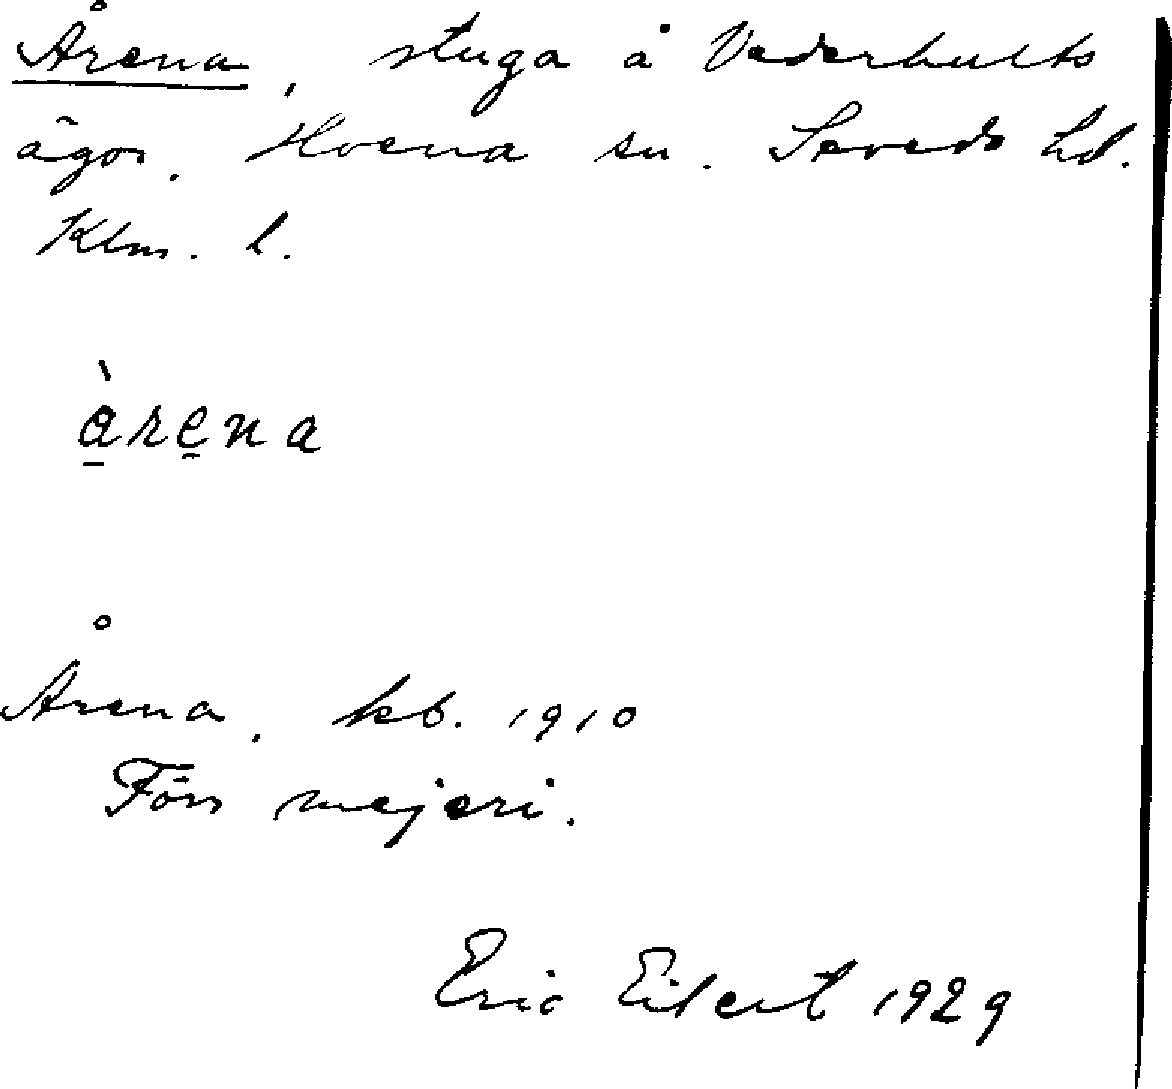 Årena, stuga å Vederhults
ägor. Hvena sn. Sevede hd.
Klm. l.
àrena
Årena. kb. 1910
Förr mejeri.
Eric Eilert 1929